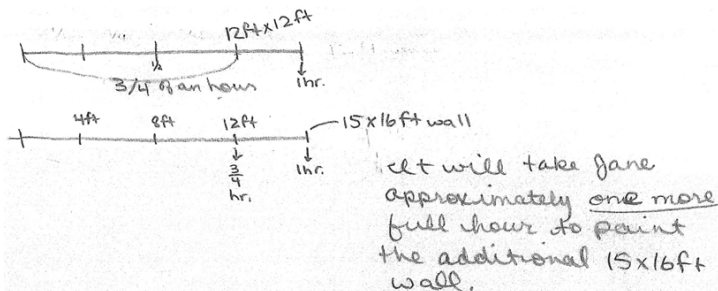 12ft x 12ft
1/2
3/4 of an hour
1hr.
4ft 8ft 12ft 15x16ft wall
3/4 hr.
1hr.
It will take Jane
approximately one more
full hour to paint
the additional 15x16ft
wall.